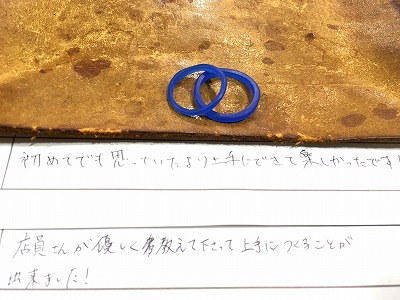 初めてでも思っていたより上手にできて楽しかったです!
店員さんが優しく教えて下さって上手につくることが
出来ました!